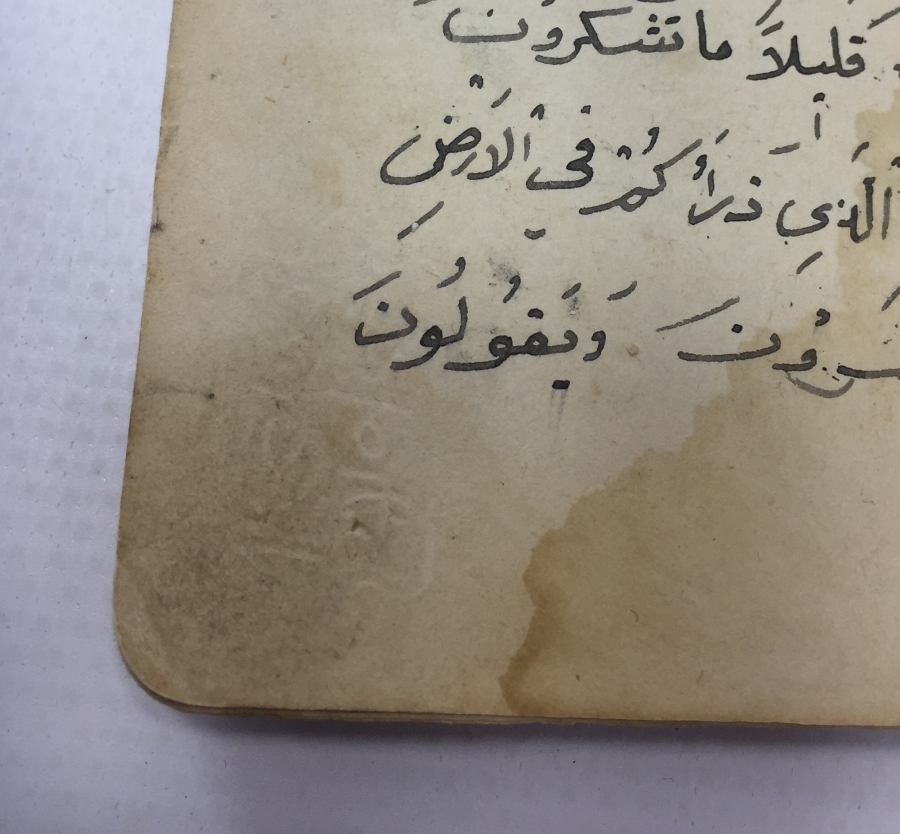 قليلاً ما تشكرون
الَّذِي ذَرَأَكُمْ فِي الْأَرْضِ
وَيَقُولُونَ